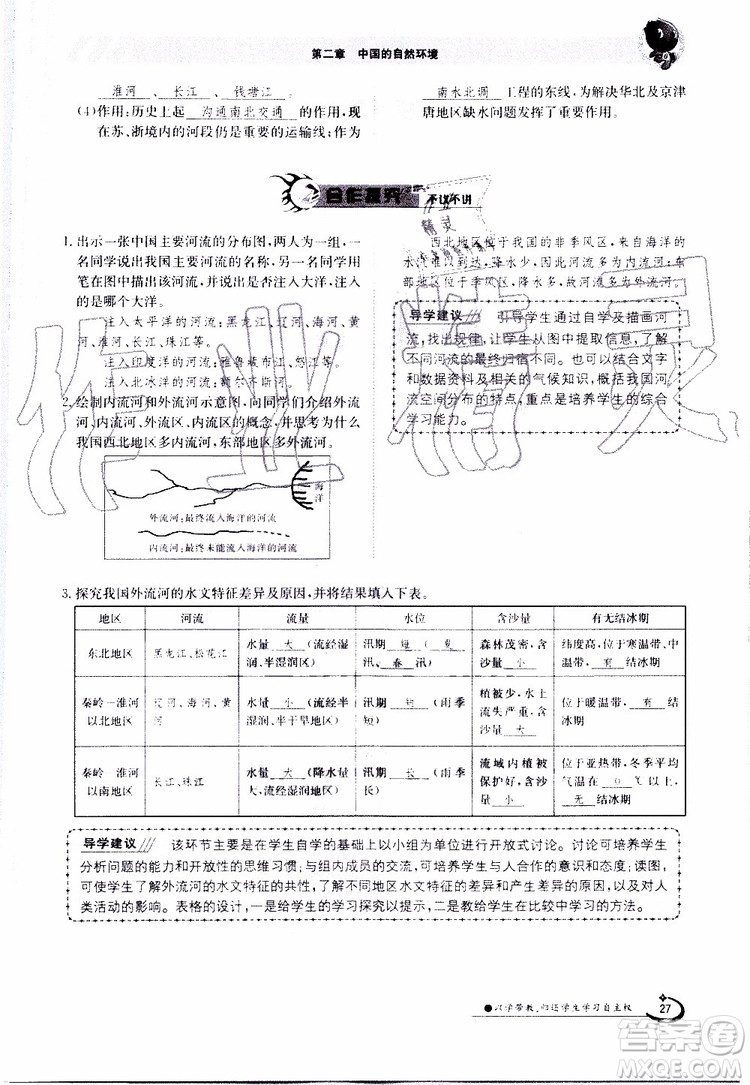 第二章 中国的自然环境
淮河、长江、钱塘江。
(4)作用:历史上起沟通南北交通的作用,现
在苏、浙境内的河段仍是重要的运输线;作为
南水北调工程的东线,为解决华北及京津
唐地区缺水问题发挥了重要作用。
合作探究 不议不讲
1. 出示一张中国主要河流的分布图,两人为一组,一
名同学说出我国主要河流的名称,另一名同学用
笔在图中描出该河流,并说出是否注入大洋,注入
的是哪个大洋。
注入太平洋的河流:黑龙江、辽河、海河、黄
河、长江、珠江。
注入印度洋的河流:雅鲁藏布江、怒江等。
注入北冰洋的河流:额尔齐斯河。
2. 绘制内流河和外流河示意图,向同学们介绍外流
河、内流河、外流区、内流区的概念,并思考为什么
我国西北地区多内流河,东部地区多外流河。
海
洋
外流河:最终流入海洋的河流
内流河:最终未能流入海洋的河流
西北地区位于我国的非季风区,来自海洋的
水汽难以到达,降水少,因此河流多为内流河;东
部地区位于季风区,降水多,故河流多为外流河。
导学建议 引导学生通过自学及描画河
流,找出规律,让学生从图中提取信息,了解
不同河流的最终归宿不同。也可以结合文字
和数据资料及相关的气候知识,思考我国河
流空间分布的特点,重点是培养学生的综合
学习能力。
3. 探究我国外流河的水文特征差异及原因,并将结果填入下表。
地区 河流 流量 水位 含沙量 有无结冰期
东北地区 黑龙江、松花江 水量大(流经湿润、半湿润区) 汛期短(夏汛、春汛) 森林茂密,含沙量小 纬度高,位于寒温带、中温带,有结冰期
秦岭—淮河以北地区 辽河、海河、黄河 水量小(流经半湿润、半干旱地区) 汛期短(雨季短) 植被少,水土流失严重,含沙量大 位于暖温带,有结冰期
秦岭 淮河以南地区 长江、珠江 水量大(降水量大,流经湿润地区) 汛期长(雨季长) 流域内植被保护好,含沙量小 位于亚热带,冬季平均气温在0℃以上,无结冰期
导学建议 该环节主要是在学生自学的基础上以小组为单位进行开放式讨论。讨论可培养学生
分析问题的能力和开放性的思维习惯;与组内成员的交流,可培养学生与人合作的意识和态度;读图,
可使学生了解外流河的水文特征的共性,了解不同地区水文特征的差异和产生差异的原因,以及对人
类活动的影响。表格的设计,一是给学生的学习探究以提示,二是教给学生在比较中学习的方法。
●以学带教,归还学生学习自主权
27
作业精灵
作业精灵
答案圈